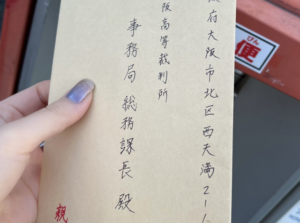 府大阪市北区西天満2-1
阪高等裁判所
事務局総務課長 殿
親
便
びん